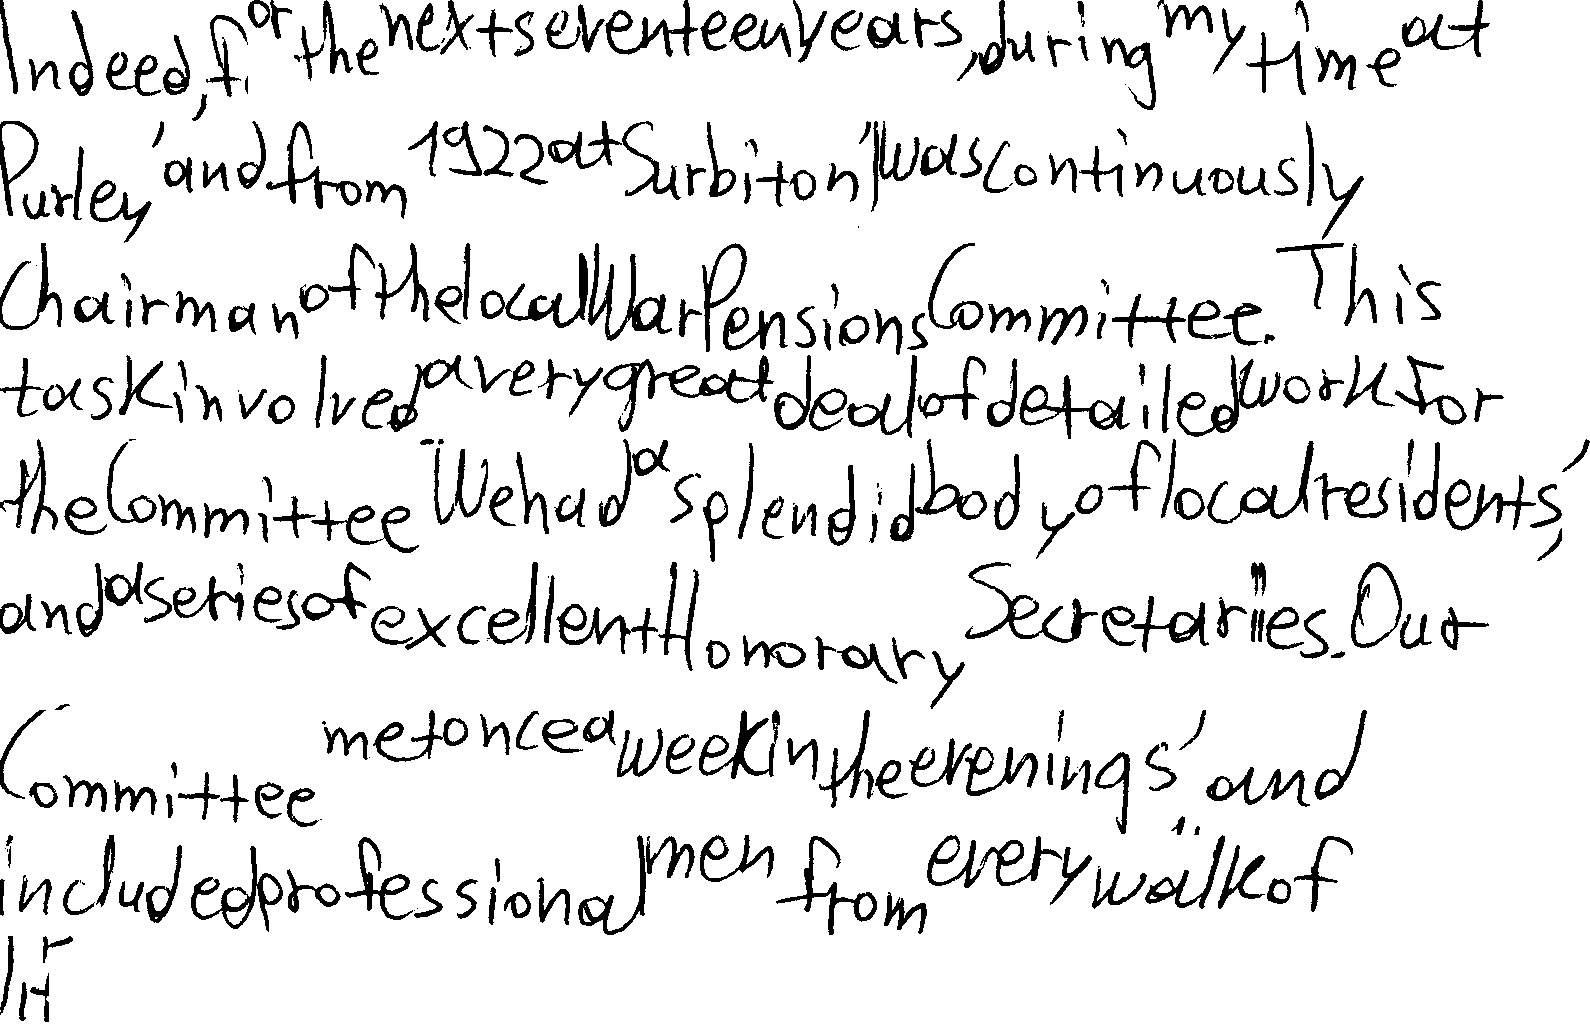 Indeed, for the next seventeen years, during my time at
Purley, and from 1922 at Surbiton, I was continuously
Chairman of the local War Pensions Committee. This
task involved a very great deal of detailed work for
the Committee. We had a splendid body of local residents,
and a series of excellent Honorary Secretaries. Our
Committee met once a week in the evenings, and
included professional men from every walk of